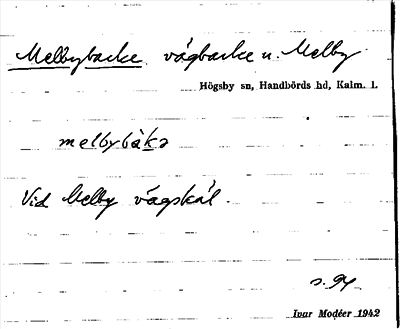 Melbybacke, vägbacke n. Melby.
Högsby sn, Handbörds hd, Kalm. l.
melbybàkə
Vid Melby vägskäl.
s. 94.
Ivar Modéer 1942